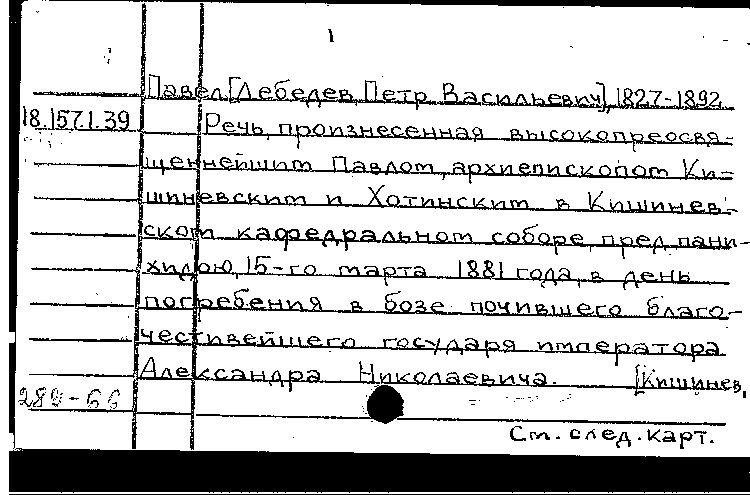 Павел [Лебедев, Петр Васильевич], 1827-1892
18.157.1.39
Речь, произнесенная высокопреосвя-
щеннейшим Павлом, архиепископом Ки-
шиневским и Хотинским в Кишинев-
ском кафедральном соборе, пред пани-
хидою, 15-го марта 1881 года, в день
погребения в бозе почившего благо-
честивейшего государя императора
Александра Николаевича. [Кишинев,
289-66
См. след. карт.